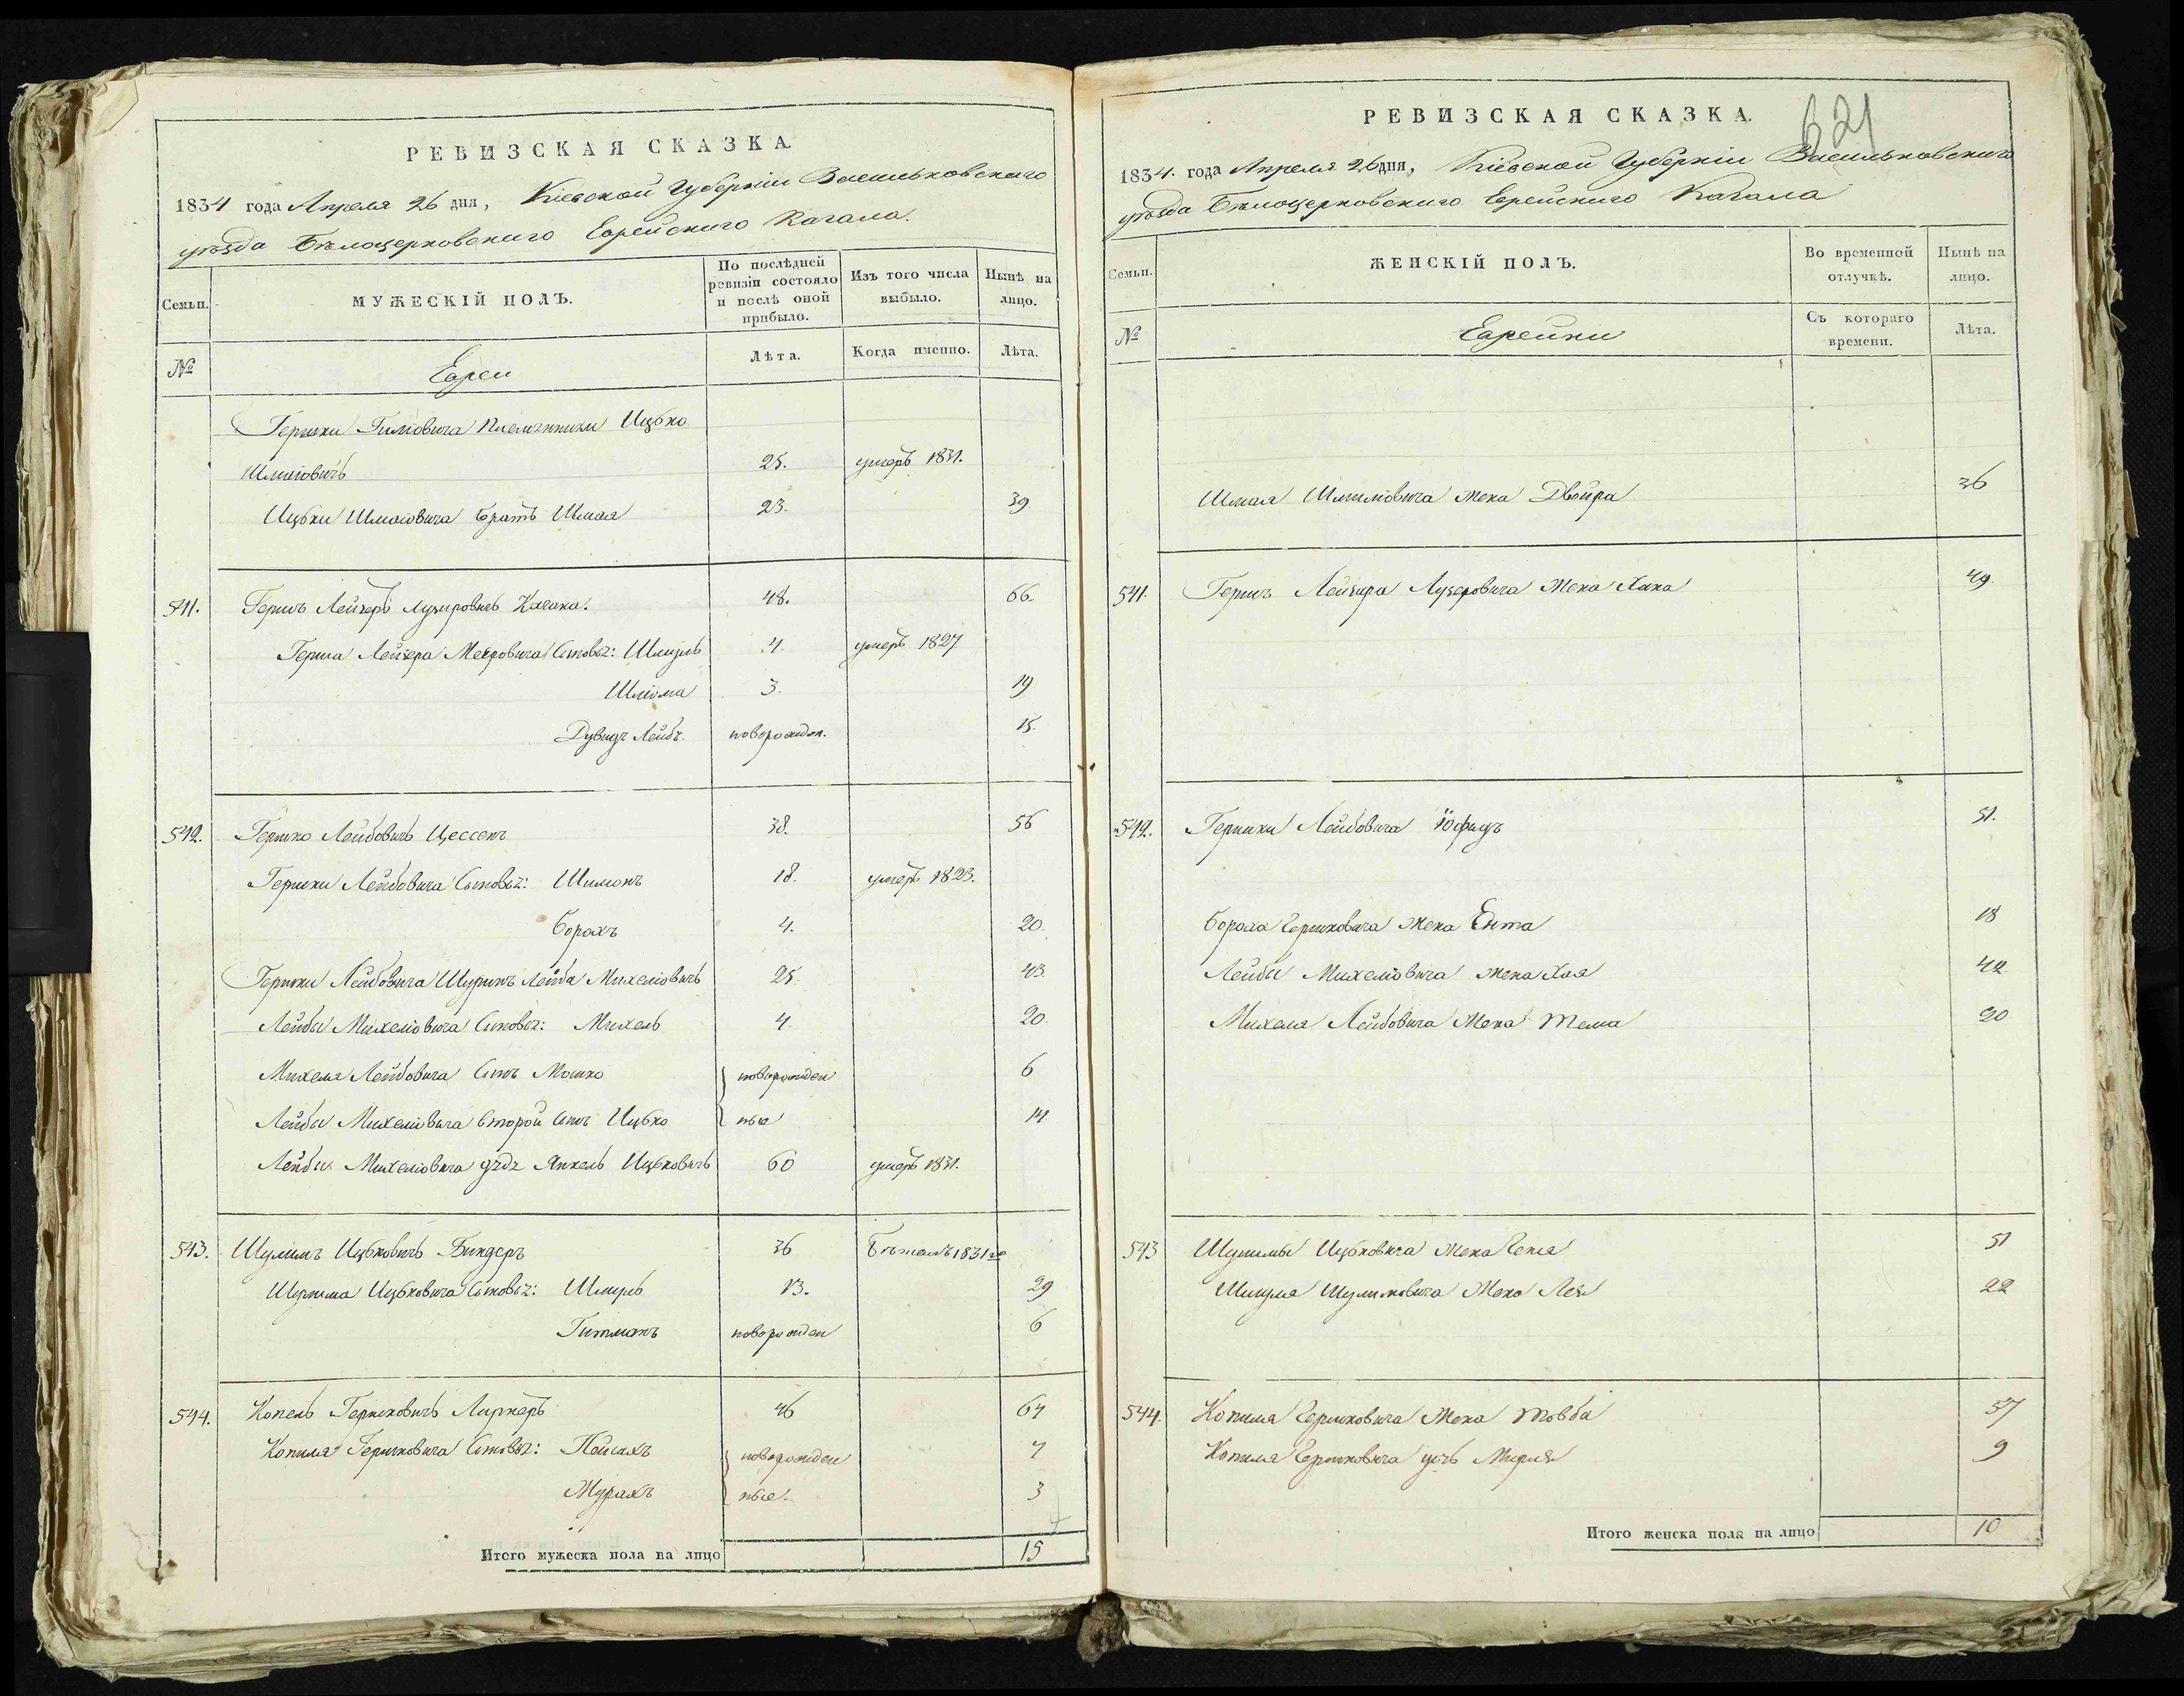 РЕВИЗСКАЯ СКАЗКА.
1834 года Апреля 26 дня, Кіевской Губерніи Васильковскаго
уѣзда Бѣлоцерковскаго Еврейскаго Кагала.
Семьи. МУЖЕСКІЙ ПОЛЪ. По послѣдней ревизіи состояло и послѣ оной прибыло. Изъ того числа выбыло. Нынѣ на лицо.
№ Евреи Лѣта. Когда именно. Лѣта.
Гершки Племянники Ицько
Шмаіовичъ 25. умеръ 1831.
Ицьки Шмаіовича братъ Шмая 23. 39
541. Гершъ Лейзеръ Лузеровичъ 48. 66.
Герша Лейзера Мееровича Сыновья: Шмуль 4. умеръ 1827
Шліома 3. 19
Дувидъ Лейбъ новорожден. 15.
542. Гершко Лейбовичъ Цессенъ 38. 56
Гершки Лейбовича Сыновья: Шимонъ 18. умеръ 1823.
Борохъ 4. 20.
Гершки Лейбовича Шуринъ Лейба Михеліовичъ 25. 43.
Лейбы Михеліовича Сыновья: Михель 4. 20
Михеля Лейбовича Сынъ Мошко новорожден 6
Лейбы Михеліовича второй Сынъ Ицько ные 14
Лейбы Михеліовича дядя Янкель Ицьковичъ 60 умеръ 1831.
543. Шулимъ Ицьковичъ Биндеръ 36 Бѣжалъ 1831го
Шулима Ицьковича Сыновья: Шмуль 13. 29
Гитманъ новорожден 6
544. Копель Гершковичъ Лирнеръ 46 64
Копеля Гершковича Сыновья: Пейсахъ новорожден 7
Мурахъ ные. 3
Итого мужеска пола на лицо 15
РЕВИЗСКАЯ СКАЗКА. 621
1834. года Апреля 26 дня, Кіевской Губерніи Васильковскаго
уѣзда Бѣлоцерковскаго Еврейскаго Кагала
Семьи. ЖЕНСКІЙ ПОЛЪ. Во временной отлучкѣ. Нынѣ на лицо.
№ Еврейки Съ котораго времени. Лѣта.
Шмая жена Двойра 36
541. Гершъ Лейзера Лузеровича Жена Хана 49.
542. Гершки Лейбовича Юфидъ 51.
Бороха Гершковича Жена Ента 18
Лейбы Михеліовича жена Хая 42
Михеля Лейбовича Жена Тема 20
543 Шулимы Ицьковича Жена Геня 51
Шмуля Шулимовича Жена Лея 22
544. Копеля Гершковича Жена Товба 57
Копеля Гершковича дочь Мирля 9
Итого женска пола на лицо 10